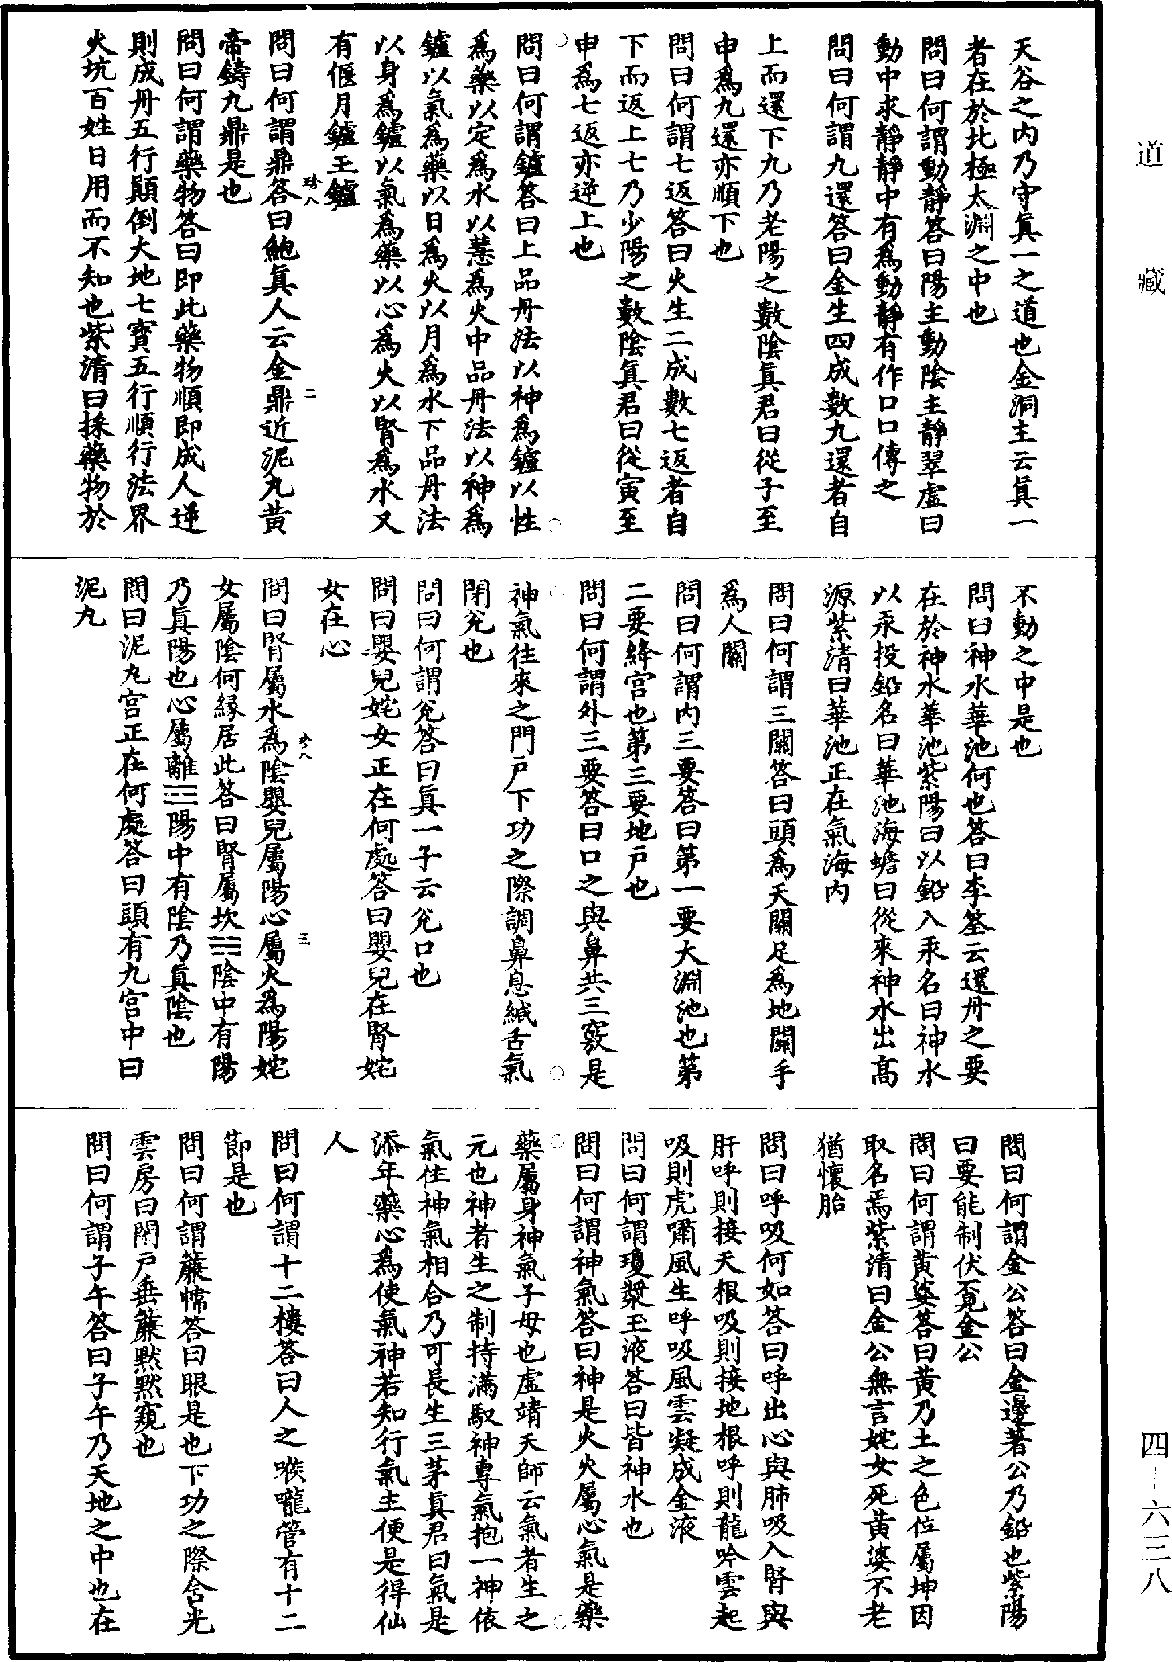 道藏
四-六三八
天谷之內乃守眞一之道也金洞主云眞一
者在於北極太淵之中也
問曰何謂動靜答曰陽主動陰主靜翠虛曰
動中求靜靜中有爲動靜有作口口傳之
問曰何謂九還答曰金生四成數九還者自
上而還下九乃老陽之數陰眞君曰從子至
申爲九還亦順下也
問曰何謂七返答曰火生二成數七返者自
下而返上七乃少陽之數陰眞君曰從寅至
申爲七返亦逆上也
問曰何謂鑪答曰上品丹法以神爲鑪以性
爲藥以定爲水以慧爲火中品丹法以神爲
鑪以氣爲藥以日爲火以月爲水下品丹法
以身爲鑪以氣爲藥以心爲火以腎爲水又
有偃月鑪玉鑪
珍八 二
問曰何謂鼎答曰鮑眞人云金鼎近泥丸黃
帝鑄九鼎是也
問曰何謂藥物答曰即此藥物順即成人逆
則成丹五行顛倒大地七寶五行順行法界
火坑百姓日用而不知也紫清曰採藥物於
不動之中是也
問曰神水華池何也答曰李筌云還丹之要
在於神水華池紫陽曰以鉛入汞名曰神水
以汞投鉛名曰華池海蟾曰從來神水出高
源紫清曰華池正在氣海內
問曰何謂三關答曰頭爲天關足爲地關手
爲人關
問曰何謂內三要答曰第一要大淵池也第
二要絳宮也第三要地戸也
問曰何謂外三要答曰口之與鼻共三竅是
神氣往來之門戸下功之際調鼻息緘舌氣
閉兌也
問曰何謂兌答曰眞一子云兌口也
問曰嬰兒姹女正在何處答曰嬰兒在腎姹
女在心
珍八 三
問曰腎屬水爲陰嬰兒屬陽心屬火爲陽姹
女屬陰何緣居此答曰腎屬坎☵陰中有陽
乃眞陽也心屬離☲陽中有陰乃眞陰也
問曰泥丸宮正在何處答曰頭有九宮中曰
泥丸
問曰何謂金公答曰金邊著公乃鉛也紫陽
曰要能制伏覓金公
問曰何謂黃婆答曰黃乃土之色位屬坤因
取名焉紫清曰金公無言姹女死黃婆不老
猶懷胎
問曰呼吸何如答曰呼出心與肺吸入腎與
肝呼則接天根吸則接地根呼則龍吟雲起
吸則虎嘯風生呼吸風雲凝成金液
問曰何謂瓊漿玉液答曰皆神水也
問曰何謂神氣答曰神是火火屬心氣是藥
藥屬身神氣子母也虛靖天師云氣者生之
元也神者生之制持滿馭神專氣抱一神依
氣住神氣相合乃可長生三茅眞君曰氣是
添年藥心爲使氣神若知行氣主便是得仙
人
問曰何謂十二樓答曰人之喉嚨管有十二
節是也
問曰何謂簾幃答曰眼是也下功之際含光
雲房曰閉戸垂簾默默窺也
問曰何謂子午答曰子午乃天地之中也在